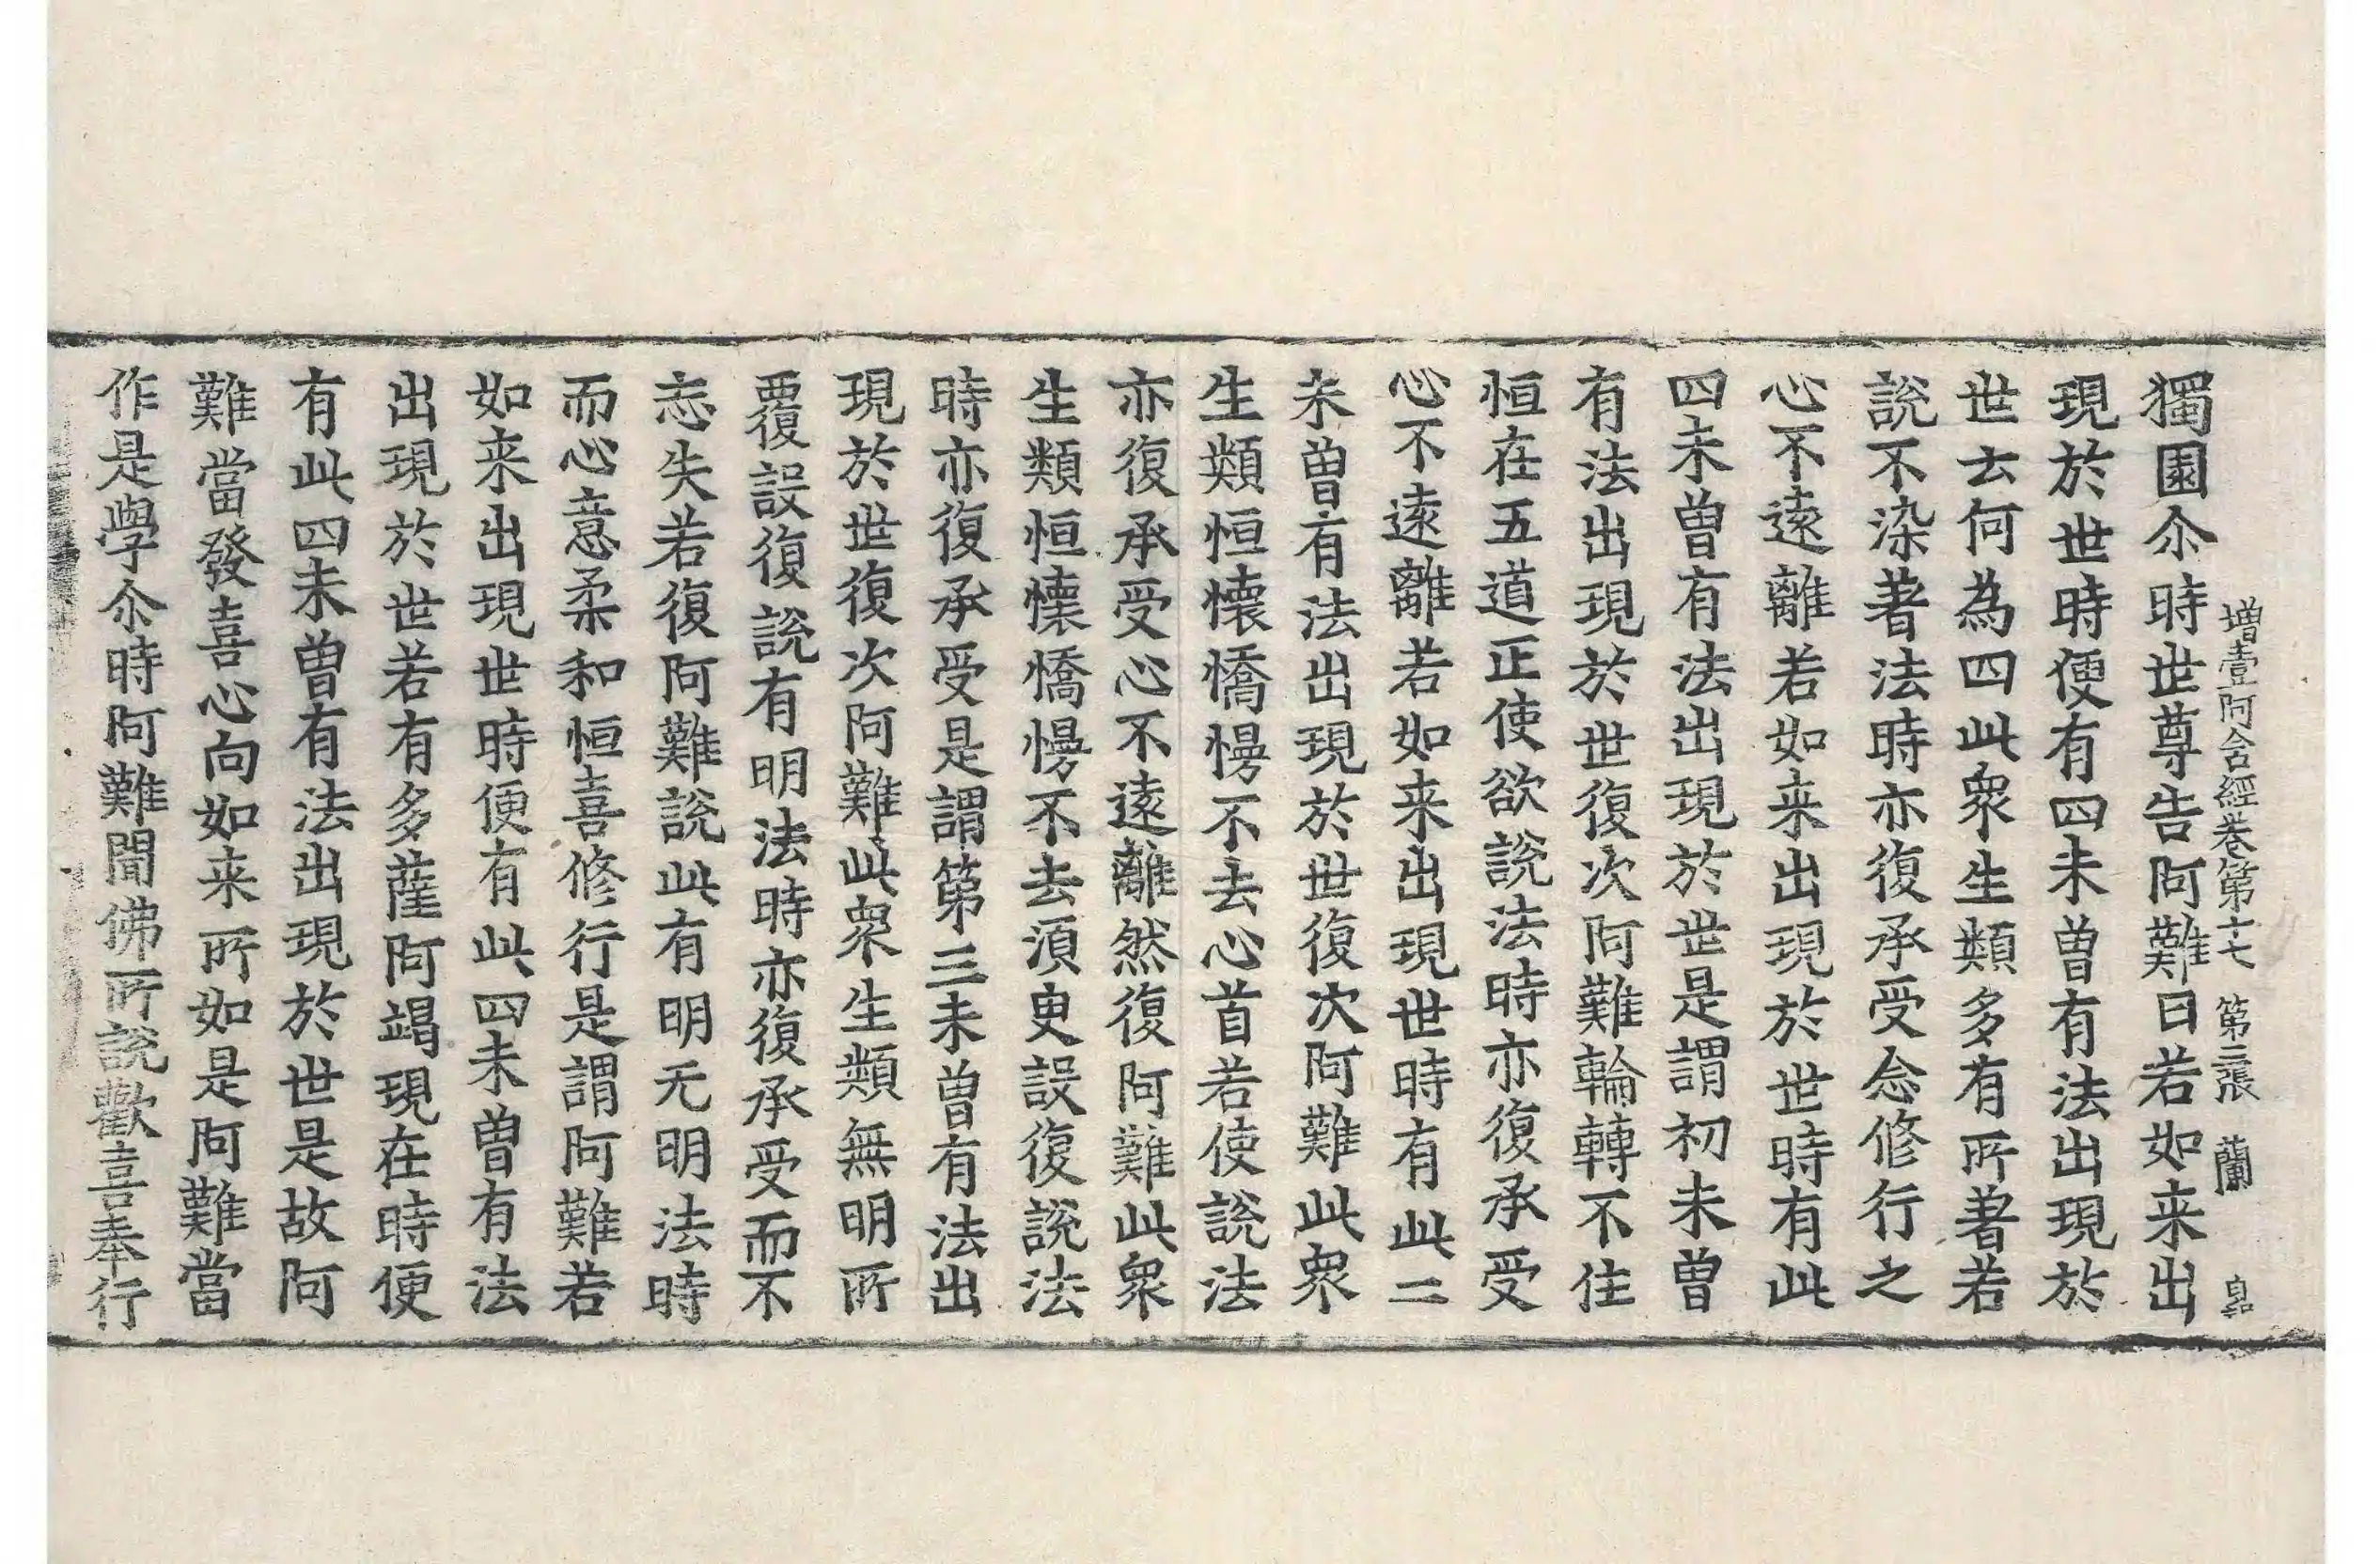 增壹阿含經卷第十七 第三張 蘭
獨園尒時世尊告阿難曰若如来出
現於世時便有四未曽有法出現於
世云何為四此衆生類多有所著若
說不染著法時亦復承受念修行之
心不遠離若如来出現於世時有此
四未曽有法出現於世是謂初未曽
有法出現於世復次阿難輪轉不住
恒在五道正使欲說法時亦復承受
心不遠離若如来出現世時有此二
未曽有法出現於世復次阿難此衆
生類恒懷憍慢不去心首若使說法
亦復承受心不遠離然復阿難此衆
生類恒懷憍慢不去須臾設復說法
時亦復承受是謂第三未曽有法出
現於世復次阿難此衆生類無明所
覆設復說有明法時亦復承受而不
忘失若復阿難說此有明无明法時
而心意柔和恒喜修行是謂阿難若
如来出現世時便有此四未曽有法
出現於世若有多薩阿竭現在時便
有此四未曽有法出現於世是故阿
難當發喜心向如来所如是阿難當
作是學尒時阿難聞佛所說歡喜奉行